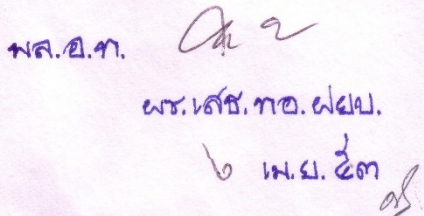 พล.อ.ท.
ผช.เสธ.ทอ.ฝยบ.
๖ เม.ย. ๕๓